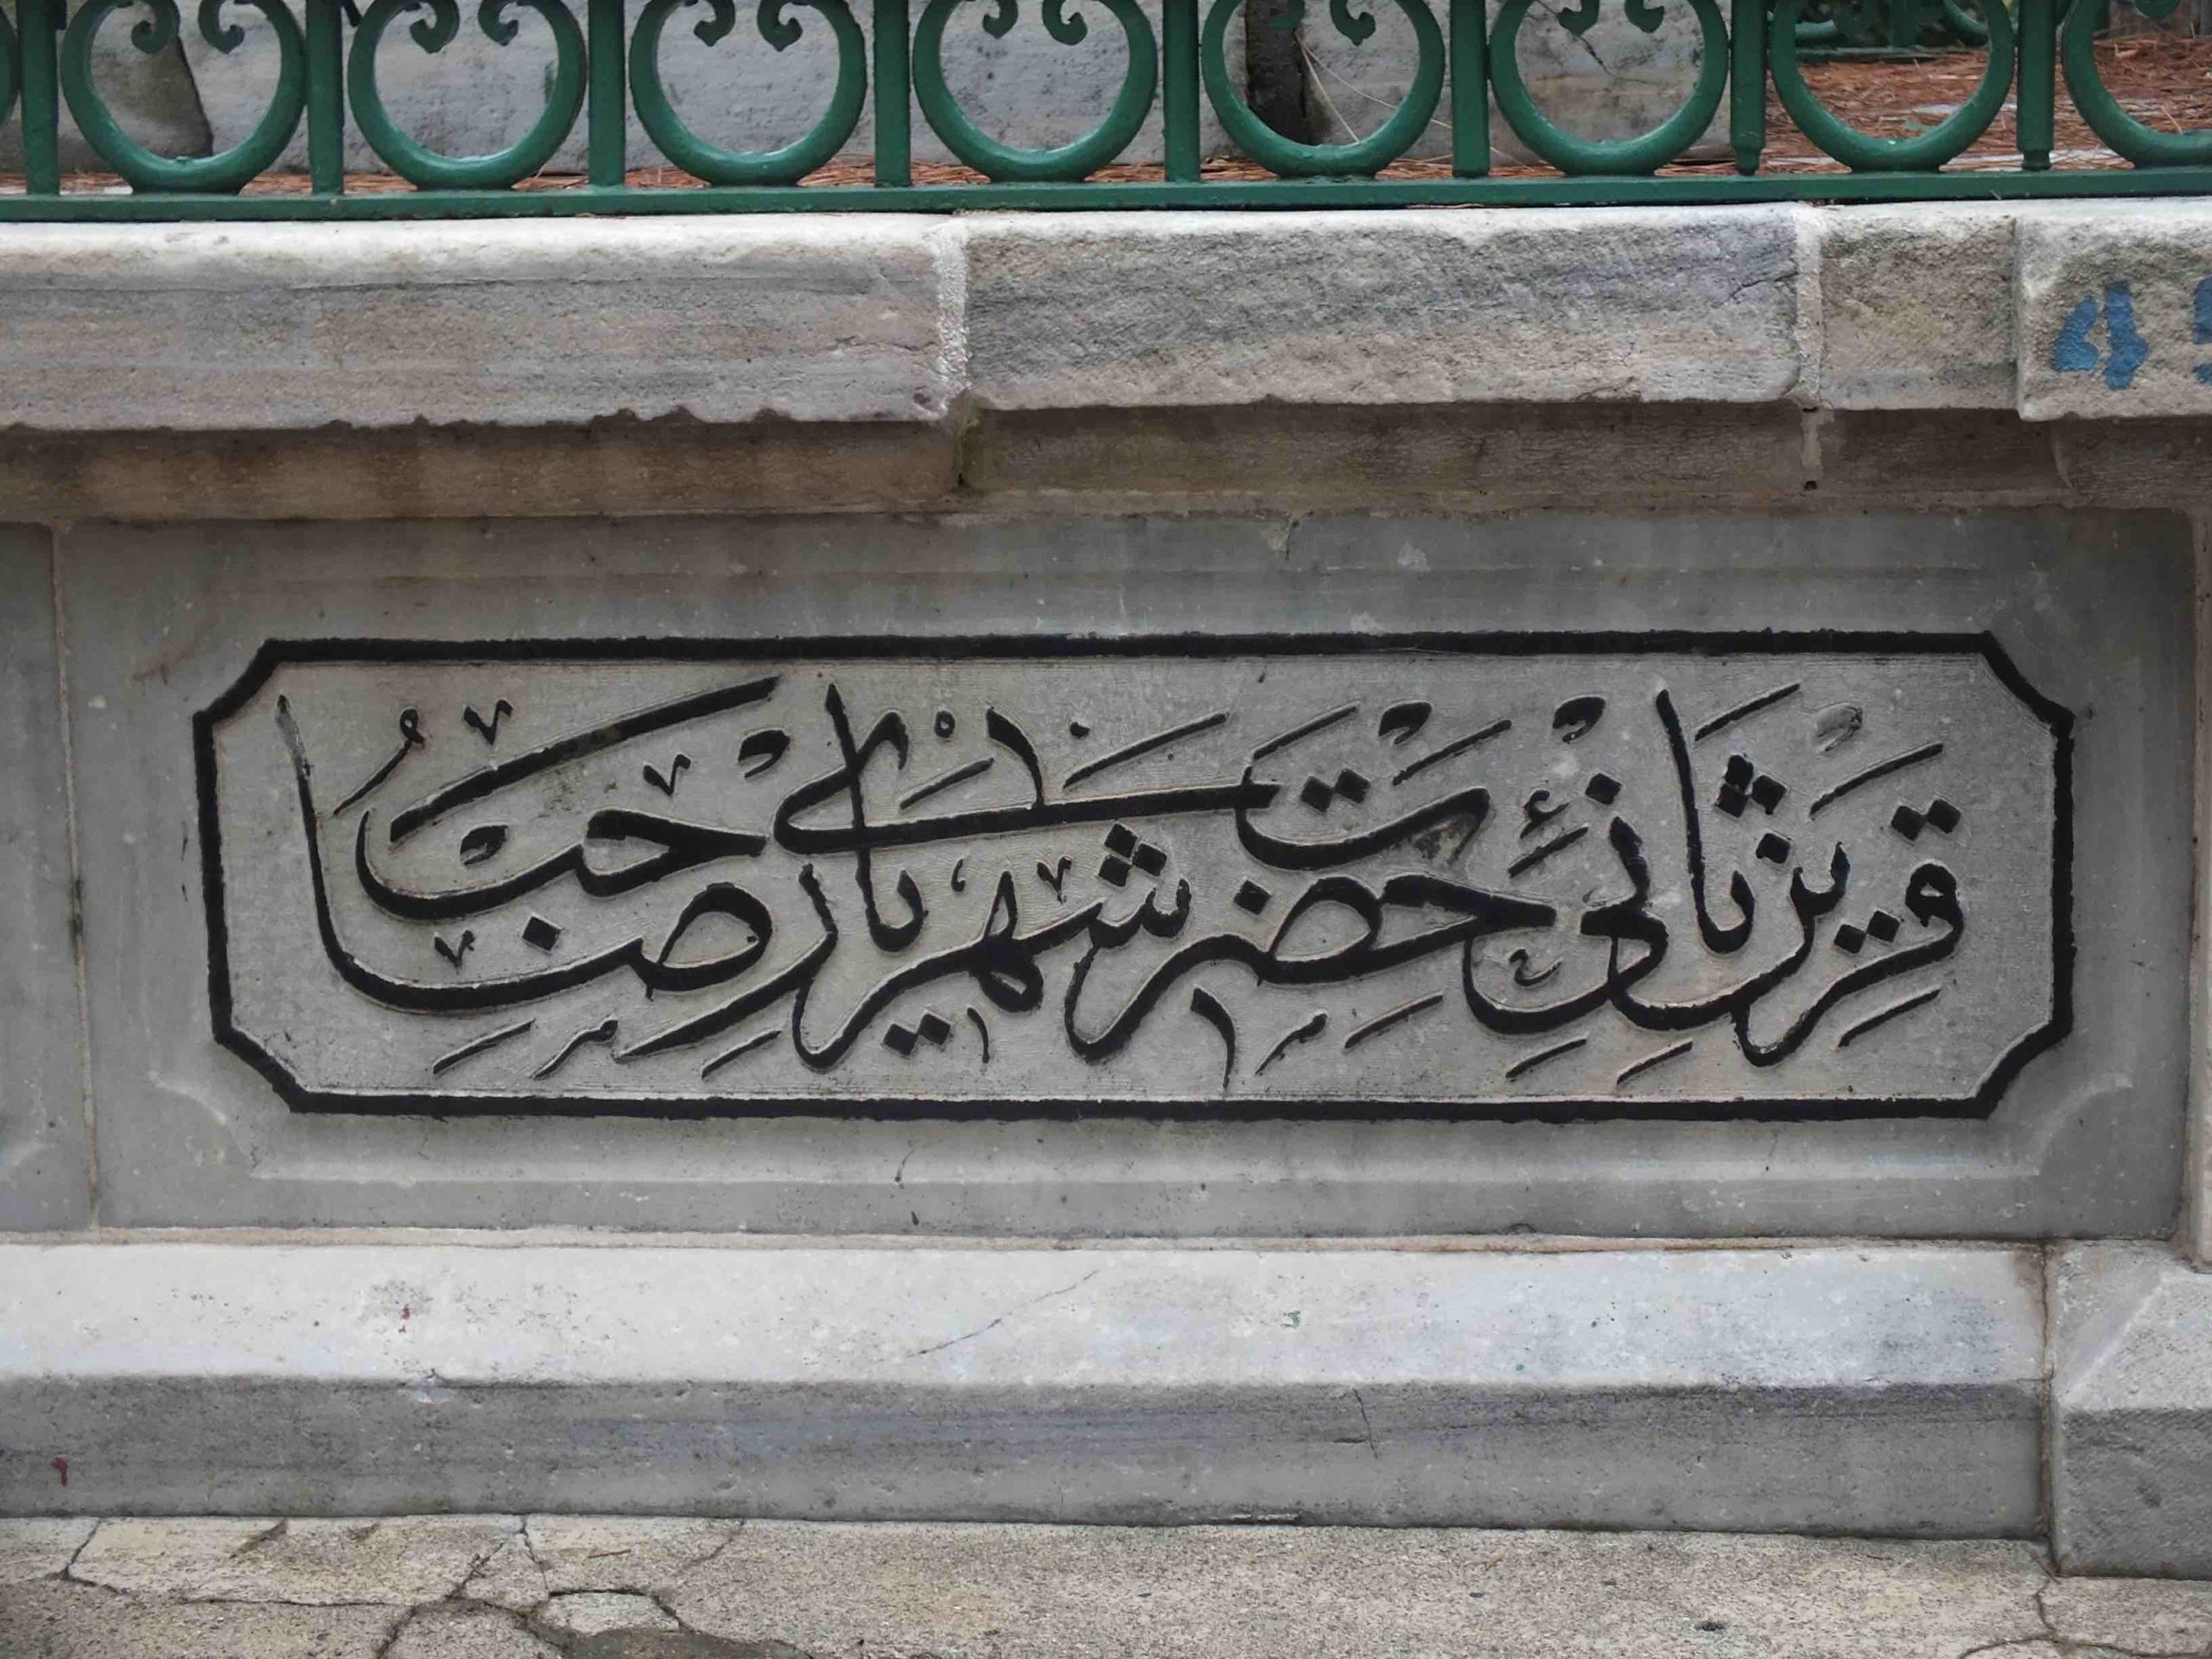 قرین ثانئ حضرت شهریاری صاحب